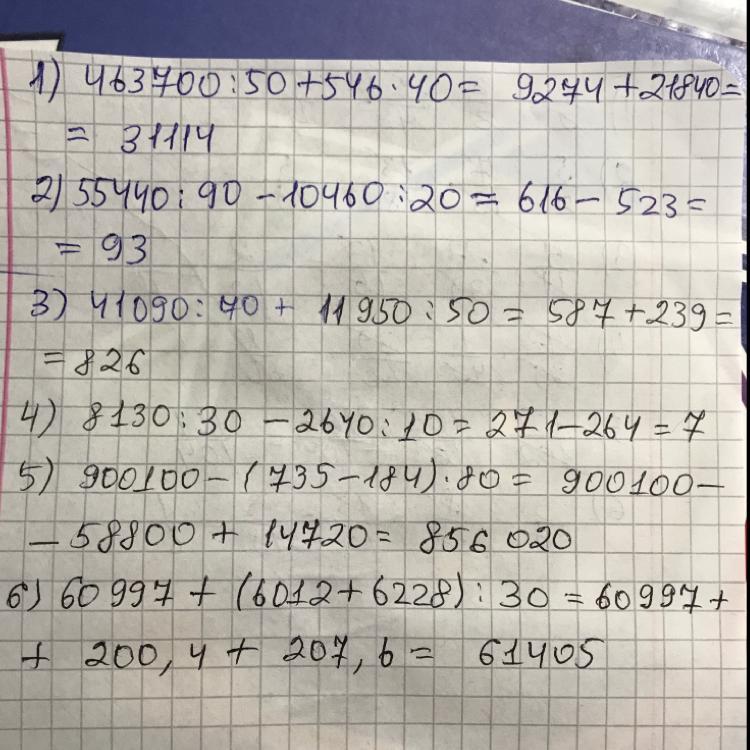 1) 463700:50+546·40= 9274+21840=
= 31114
2) 55440:90-10460:20=616-523=
= 93
3) 41090:70+ 11950:50=587+239=
=826
4) 8130:30-2640:10=271-264=7
5) 900100-(735-184)·80= 900100-
-58800+14720=856020
6) 60997+(6012+6228):30=60997+
+ 200,4+ 207,6= 61405